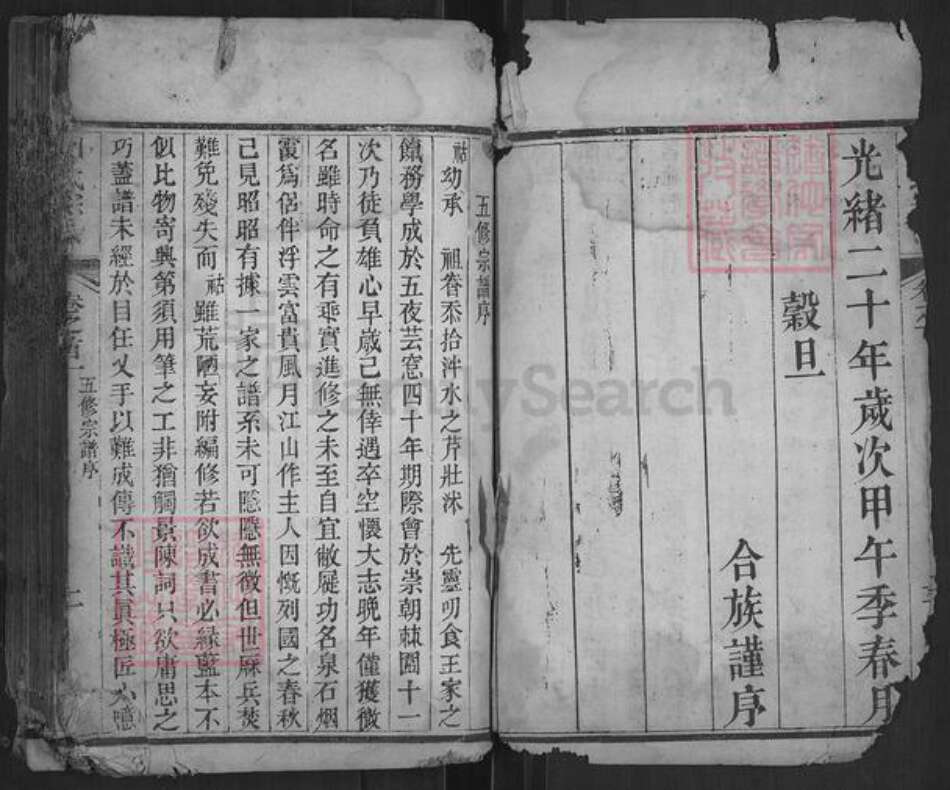 光緒二十年歲次甲午季春月
穀旦
合族謹序
五修宗譜序
祜幼承　祖眷忝拾泮水之芹壯沐　先靈叨食王家之
餼務學成於五夜芸窓四十年期際會於崇朝棘闈十一
次乃徒負雄心早歲己無倖遇卒空懷大志晚年僅獲微
名雖時命之有乖實進修之未至自宜敝屣功名泉石烟
霞爲侶伴浮雲富貴風月江山作主人因慨列國之春秋
己見昭昭有據一家之譜系未可隱隱無徵但世厤兵焚
難免殘失而祜雖荒陋妄附編修若欲成書必緣藍本不
似比物寄興第須用筆之工非猶觸景陳詞只欲庸思之
巧蓋譜未經於目任乂手以難成傳不識其眞極匠心噫
卷之首一
五修宗譜序
二
FamilySearch